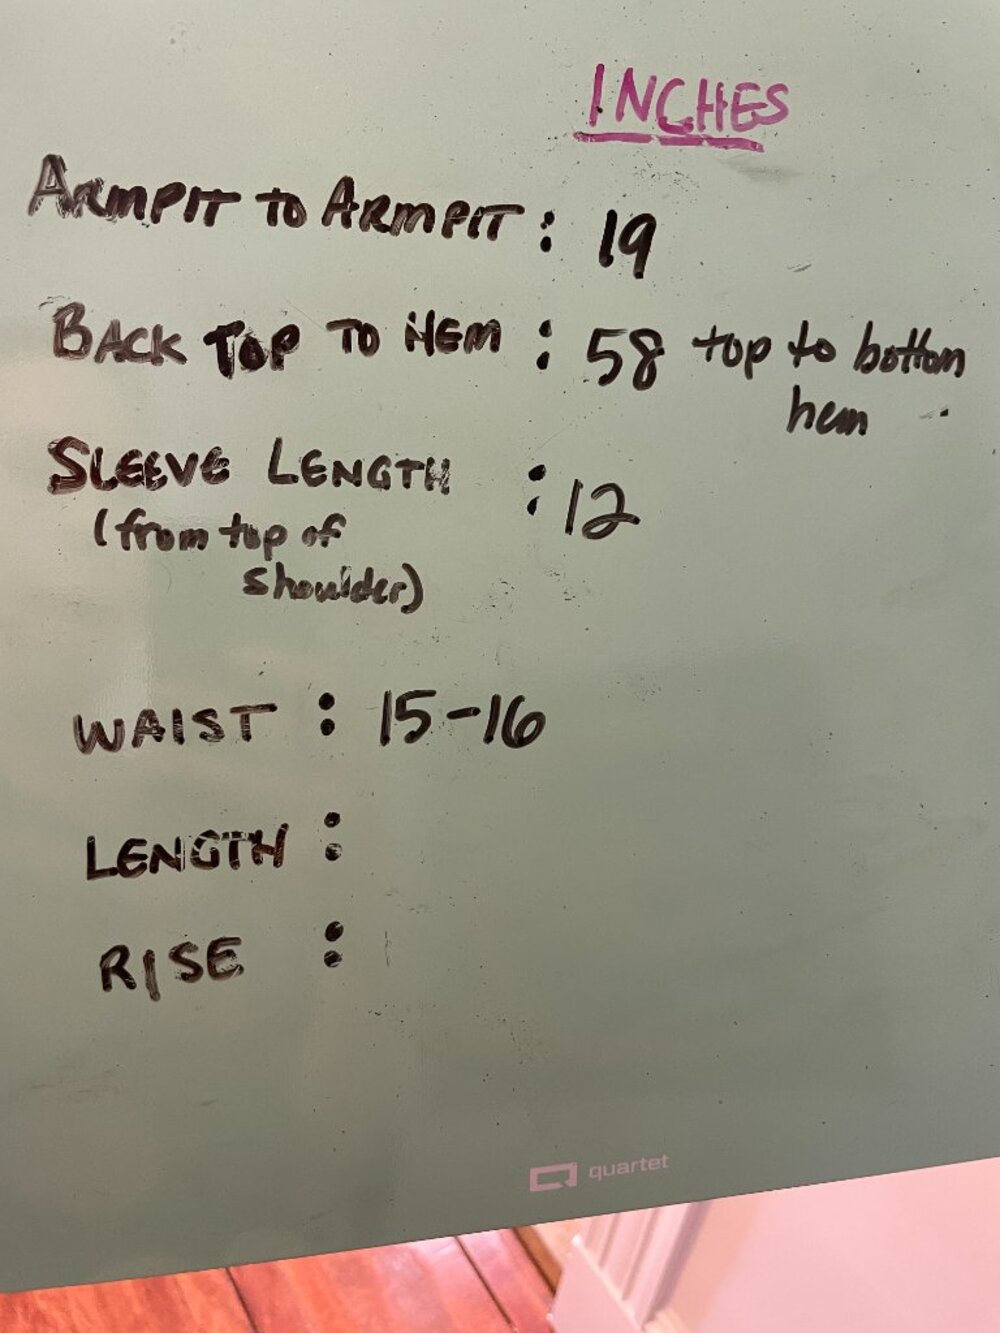 INCHES
ARMPIT TO ARMPIT : 19
BACK TOP TO HEM : 58 top to bottom
hem
SLEEVE LENGTH : 12
(from top of
shoulder)
WAIST : 15-16
LENGTH :
RISE :
quartet